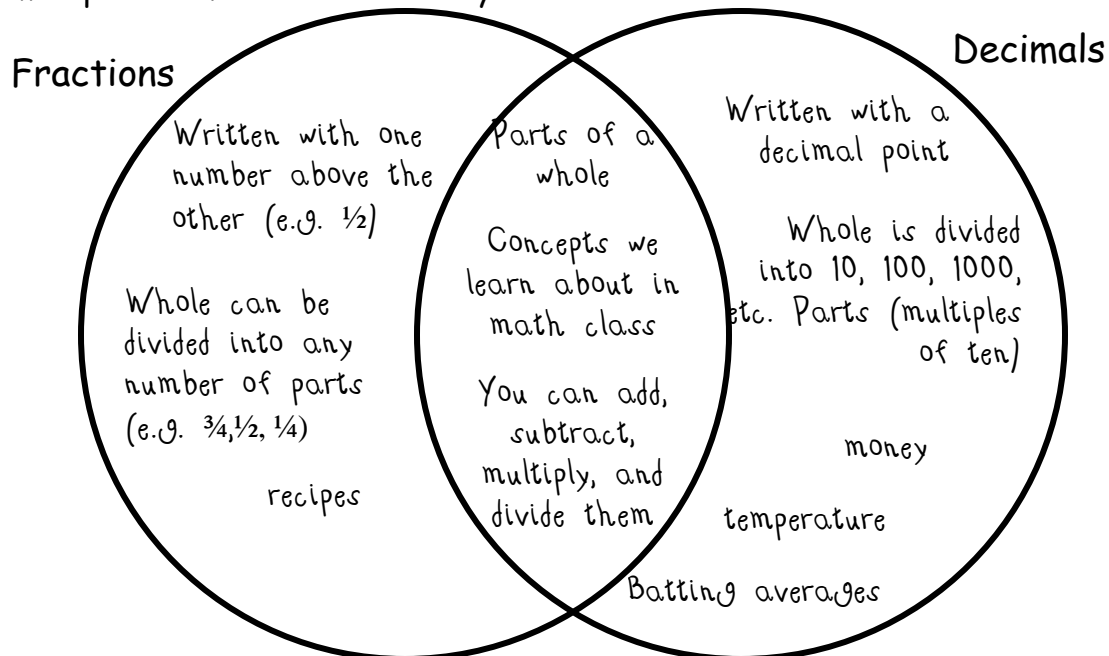 Fractions
Decimals
Written with one
number above the
other (e.g. ½)
Whole can be
divided into any
number of parts
(e.g. ¾,½, ¼)
recipes
Parts of a
whole
Concepts we
learn about in
math class
You can add,
subtract,
multiply, and
divide them
Written with a
decimal point
Whole is divided
into 10, 100, 1000,
etc. Parts (multiples
of ten)
money
temperature
Batting averages